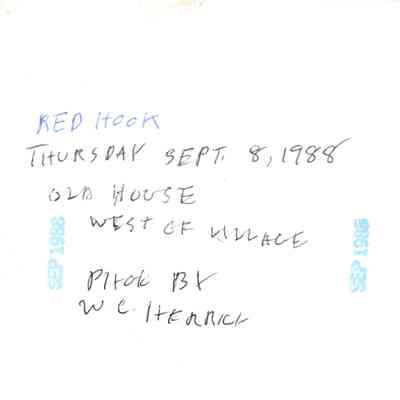 RED HOOK
THURSDAY SEPT. 8, 1988
OLD HOUSE
WEST OF VILLAGE
PHOTO BY
W C. HERRICK
SEP 1988
SEP 1988